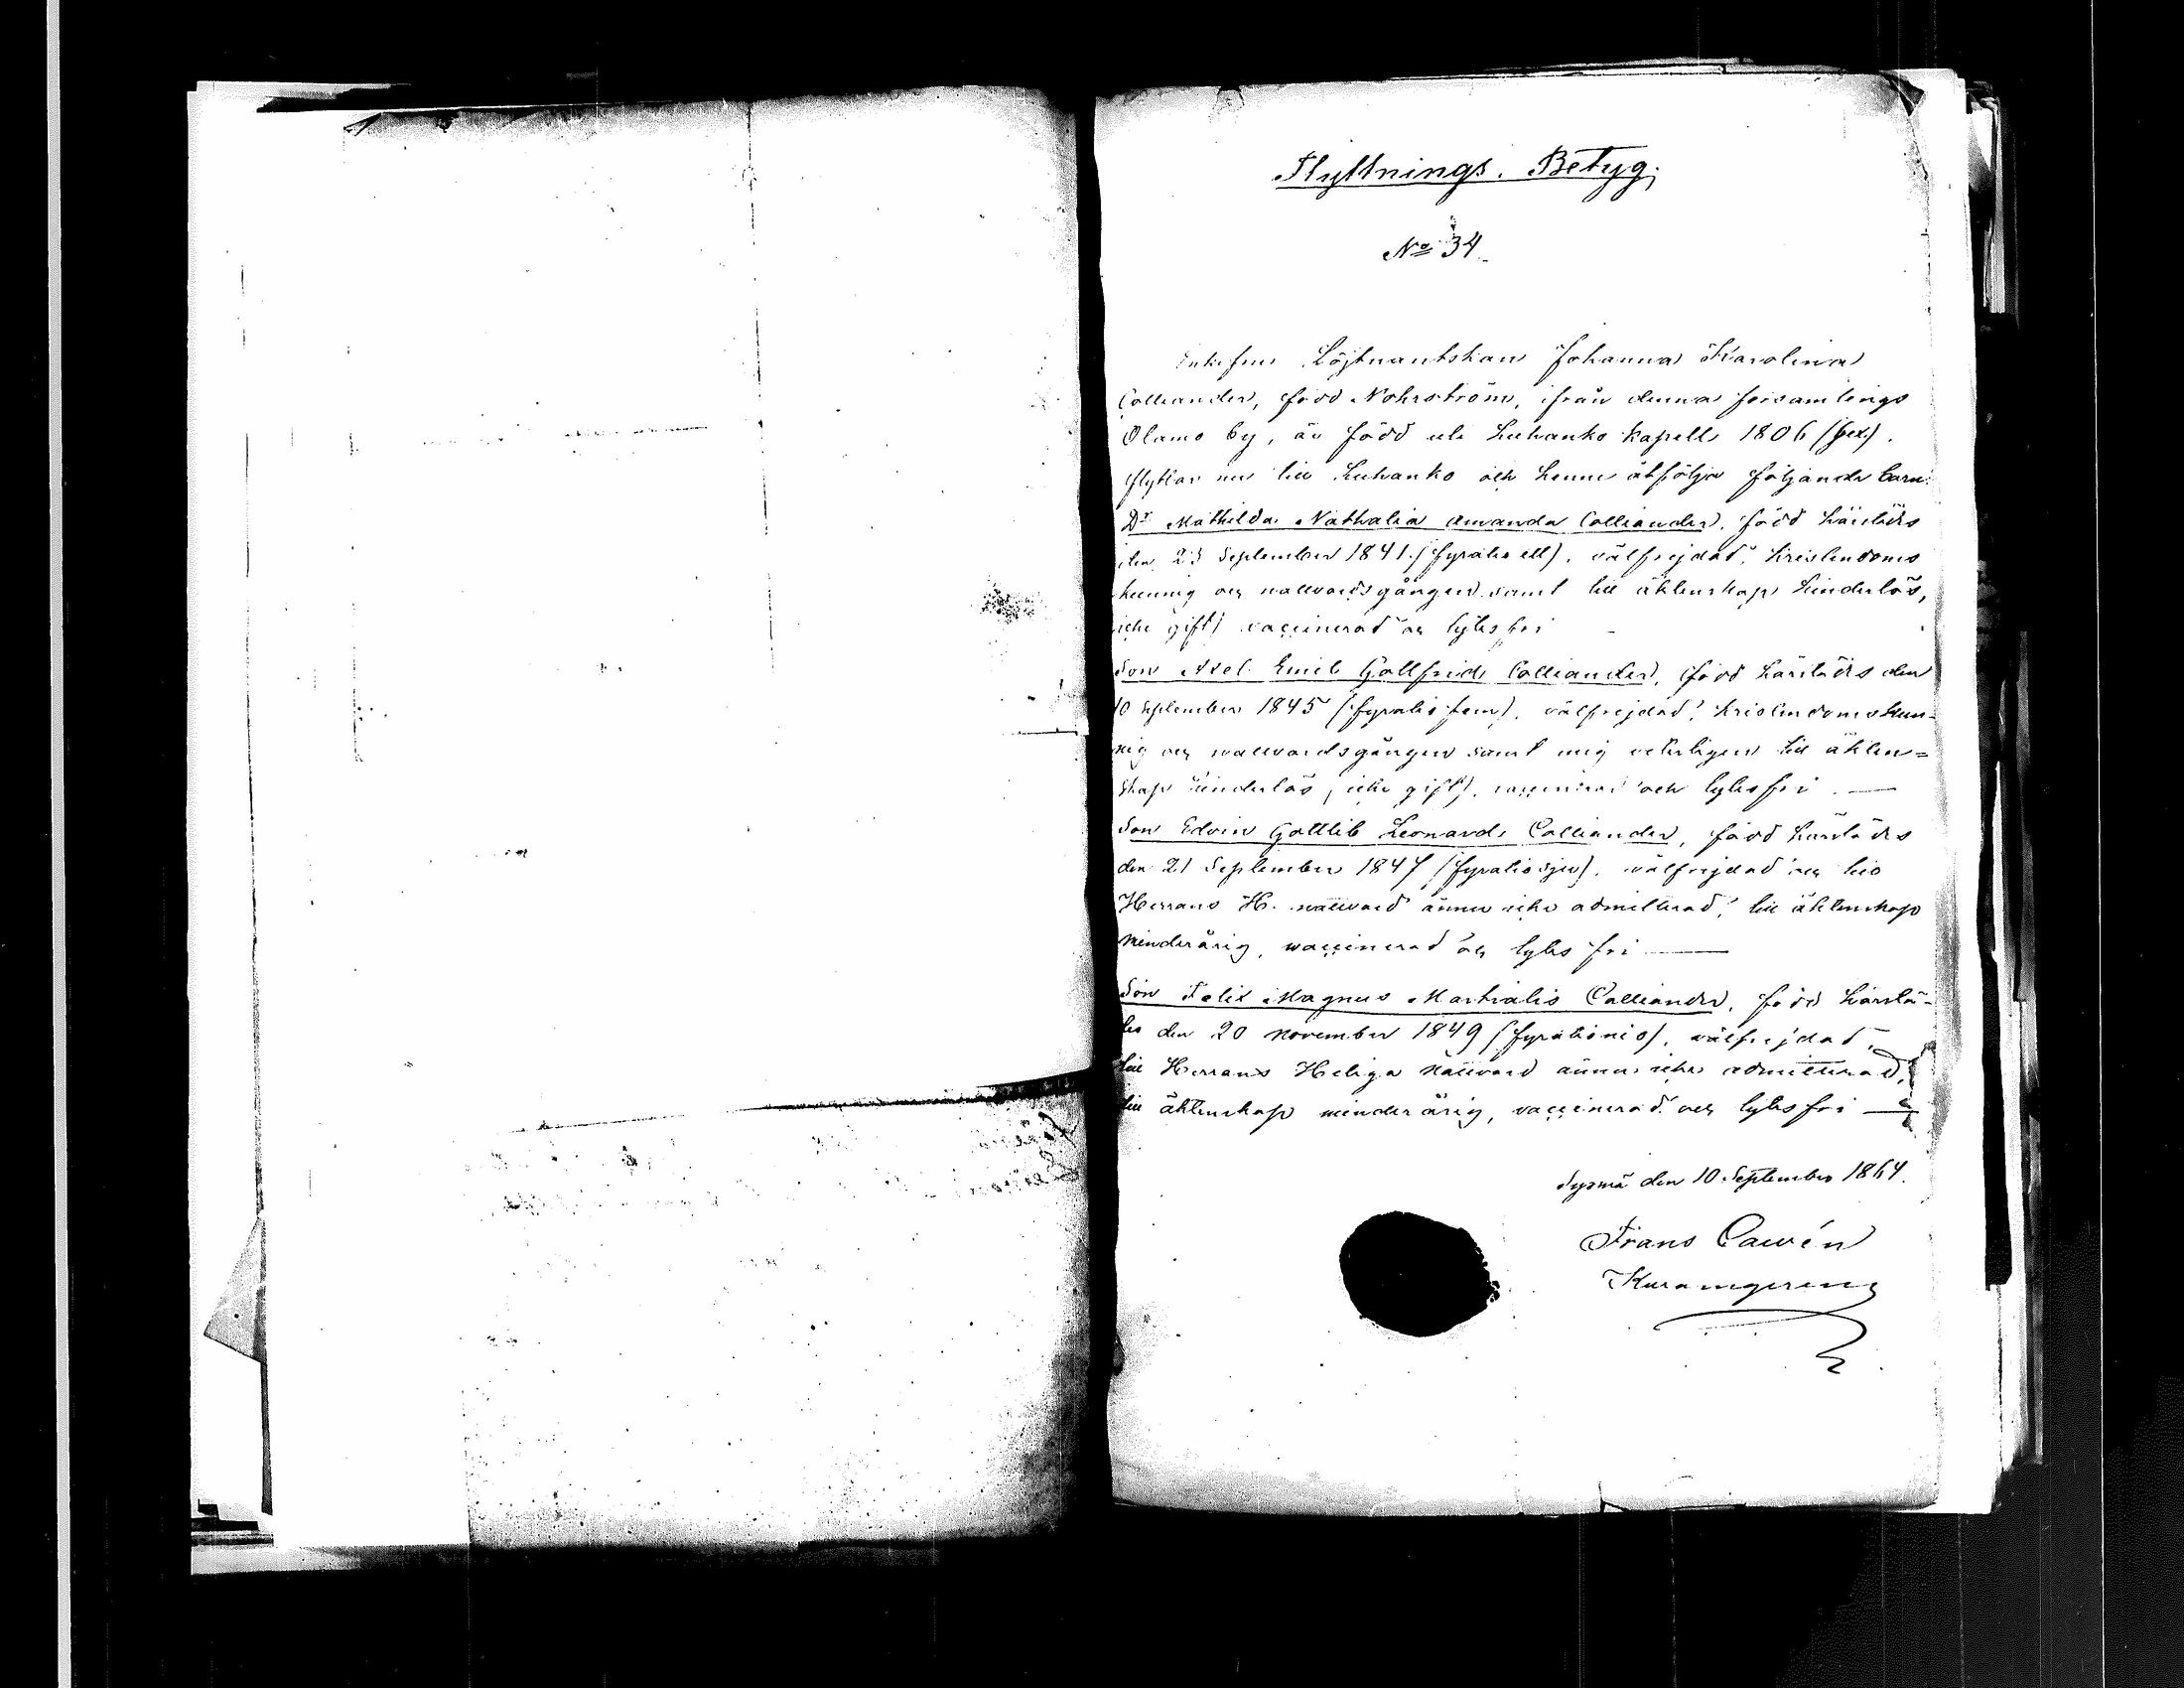 Flyttnings-Betyg.
No 34.
Enkefru Löjtnantskan Johanna Karolina
Colliander, född Nohrström, från denna församlings
Olamo by, är född uti Luhanko kapell 1806 (sex).
flyttar nu till Luhanko och henne åtfölja följande barn:
Dr Mathilda Nathalia Amanda Colliander, född härstädes
den 23 September 1841 (fyratioett), välfrejdad, kristendoms
kunnig och nattvardsgången samt till äktenskap hinderlös,
icke gift, vaccinerad och lytesfri
Son Axel Emil Gottfrid Colliander, född härstädes den
10 September 1845 (fyratiofem), välfrejdad, kristendomskun-
nig och nattvardsgången samt mig veterligen till äkten=
skap hinderlös, icke gift, vaccinerad och lytesfri. —
Son Edvin Gottlib Leonard Colliander, född härstädes
den 21 September 1847 (fyratiosju), välfrejdad och till
Herrans H. nattvard ännu icke admitterad, till äktenskap
minderårig, vaccinerad och lytesfri —
Son Felix Magnus Martialis Colliander, född härstä-
des den 20 November 1849 (fyrationio), välfrejdad,
till Herrans Heliga Nattvard ännu icke admitterad,
till äktenskap minderårig, vaccinerad och lytesfri —
Sysmä den 10 September 1864.
Frans Cawén